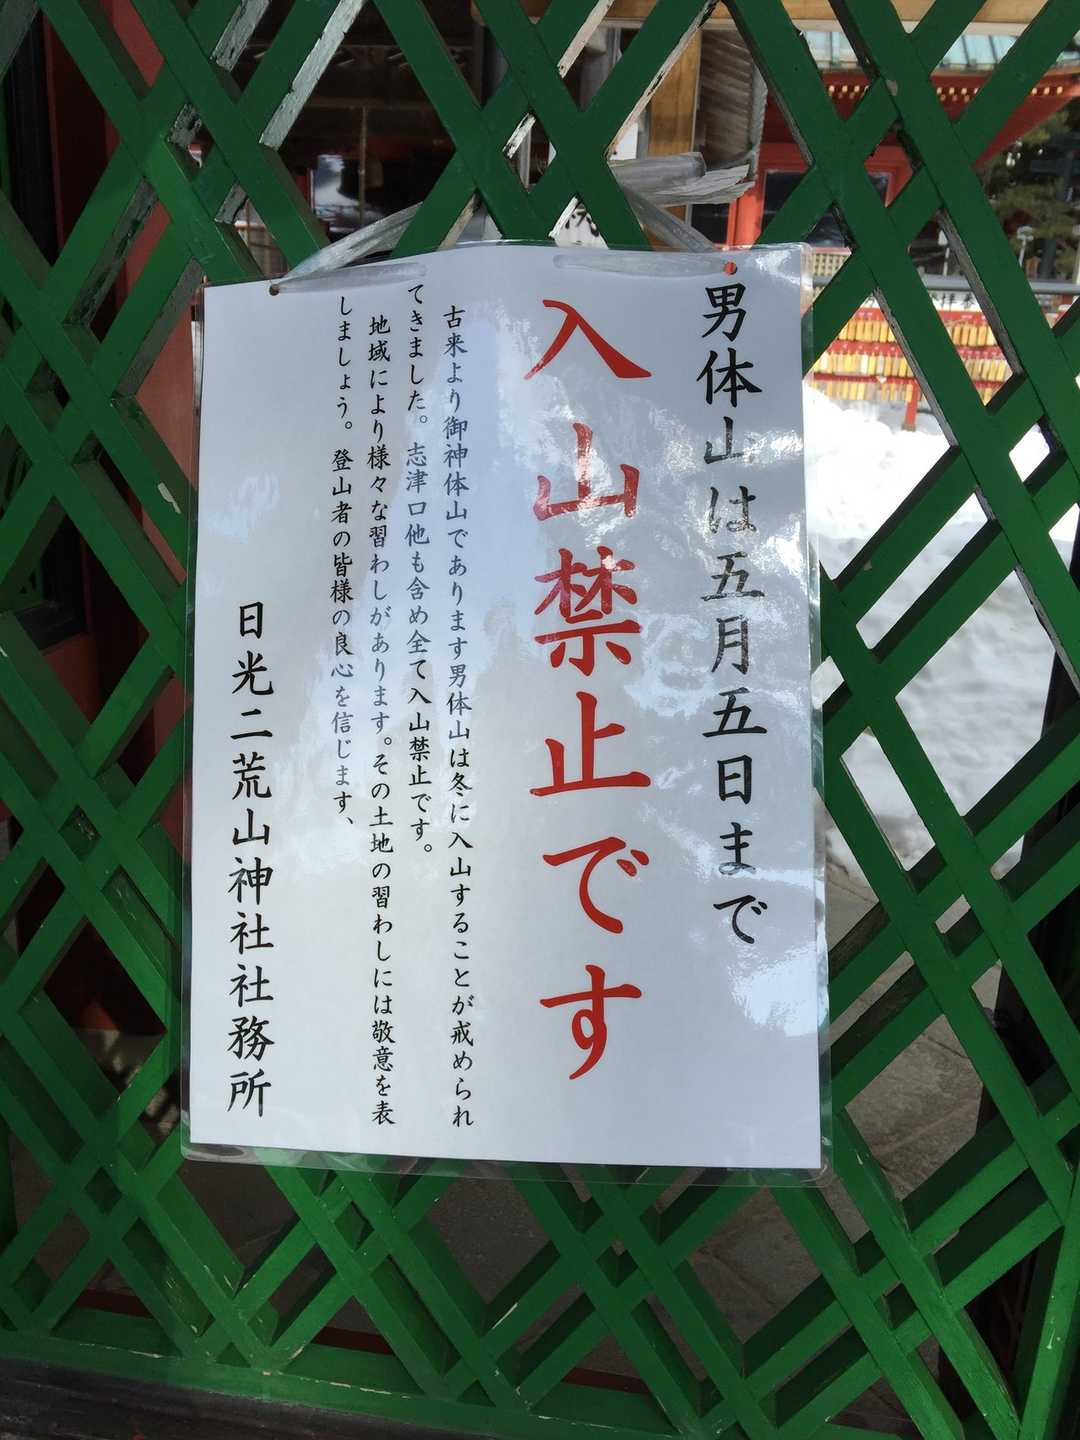 男体山は五月五日まで
入山禁止です
古来より御神体山であります男体山は冬に入山することが戒められ
てきました。志津口他も含め全て入山禁止です。
地域により様々な習わしがあります。その土地の習わしには敬意を表
しましょう。登山者の皆様の良心を信じます、
日光二荒山神社社務所